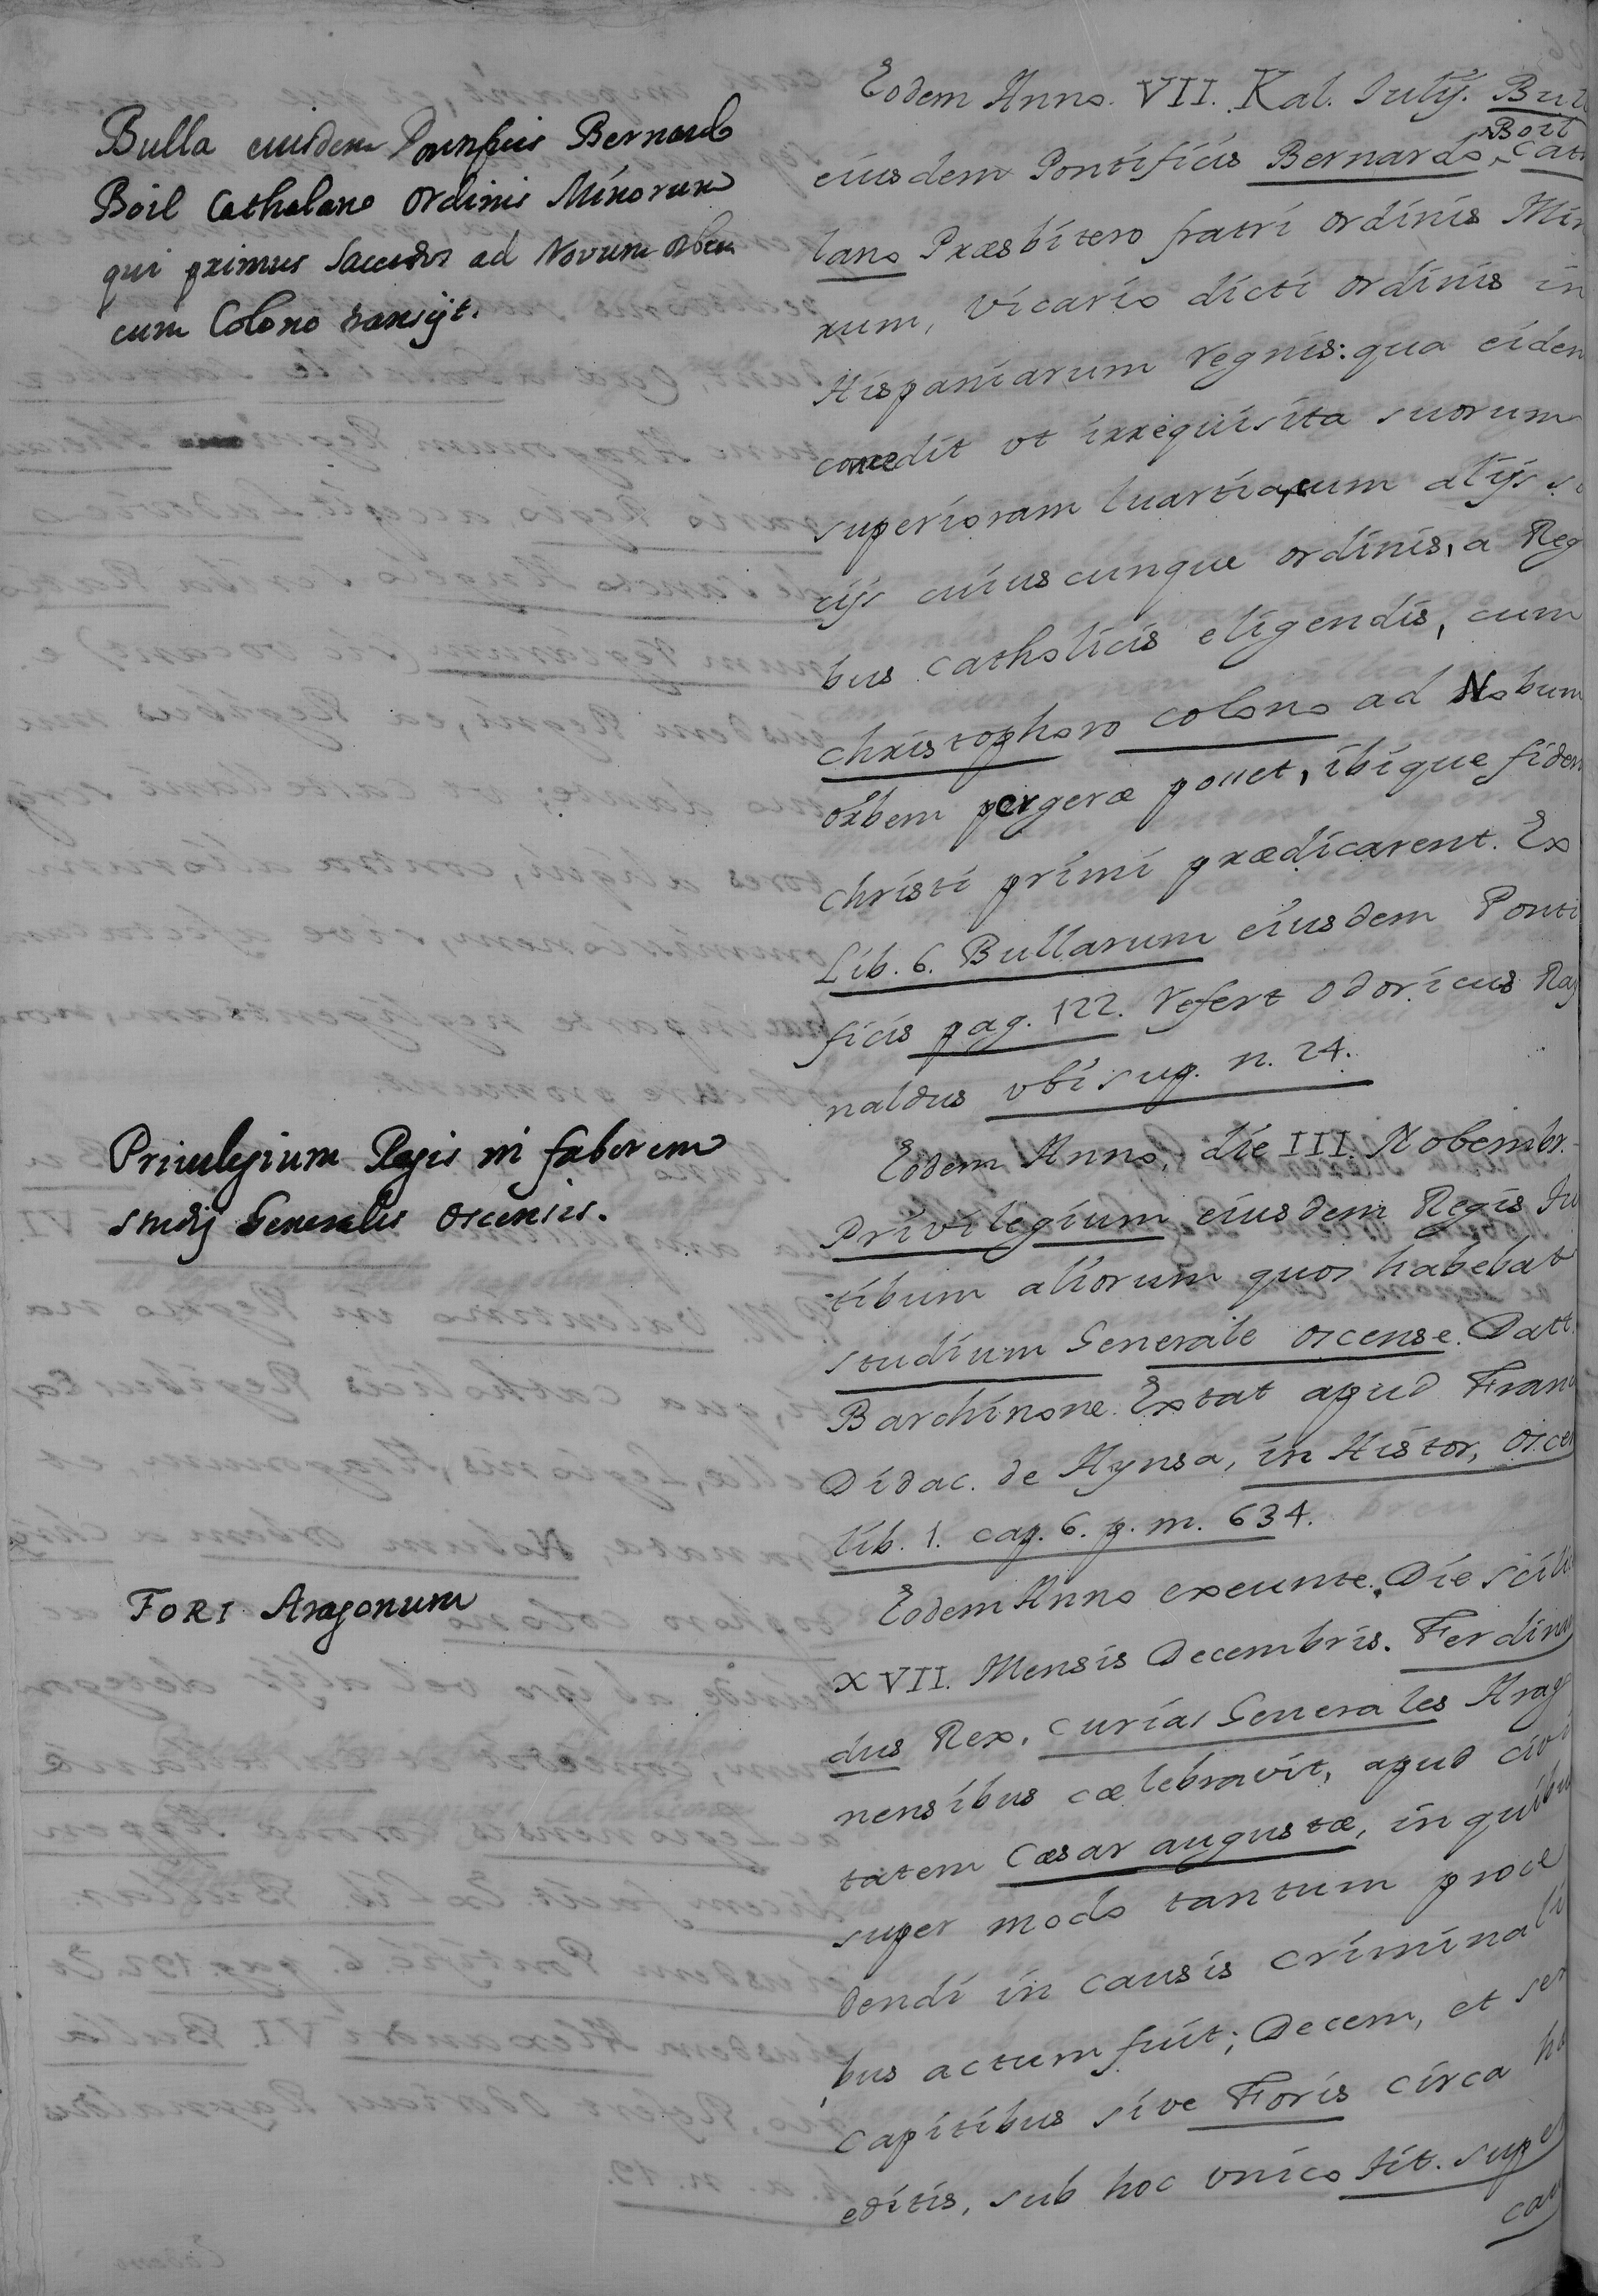 Bulla eiusdem Pontificis Bernardo
Boil Cathalano Ordinis Minorum
qui primus Sacerdos ad Novum orbem
cum Colono transijt.
Eodem Anno. VII. Kal. Julij. Bul
eiusdem Pontificis Bernardo, Boil Cath
lano Præsbitero fratri ordinis Min
rum, vicario dicti ordinis in
Hispaniarum regnis: qua eidem
concedit vt irrequisita suorum
superioram luartia, cum alijs so
cijs cuiuscunque ordinis, a Reg
bus catholicis eligendis, cum
christophoro colono ad Nobum
orbem pergeræ posset, ibique fidem
christi primi prædicarent. Ex
Lib. 6. Bullarum eiusdem Ponti
ficis pag. 122. refert odoricus Ray
naldus vbi sup. n. 24.
Priuilegium Regis in faborem
studij Generalis oscensis.
Eodem Anno, die III. Nobembr.
Privilegium eiusdem Regis Fu
tibum aliorum quos habebat
studium Generale oscense. Datt.
Barchinone. Extat apud Franc
Didac. de Aynsa, in Histor, osce
lib. 1. cap. 6. p. m. 634.
FORI Aragonum
Eodem Anno exeunte. Die scili
XVII. Mensis Decembris. Ferdinan
dus Rex, curias Generales Arag
nensibus cælebravit, apud civi
tatem Cæsar augustæ, in quibu
super modo tantum proce
dendi in causis criminali
bus actum fuit; Decem, et sex
capitibus sive Foris circa ho
editis, sub hoc vnico tit. supe
cau